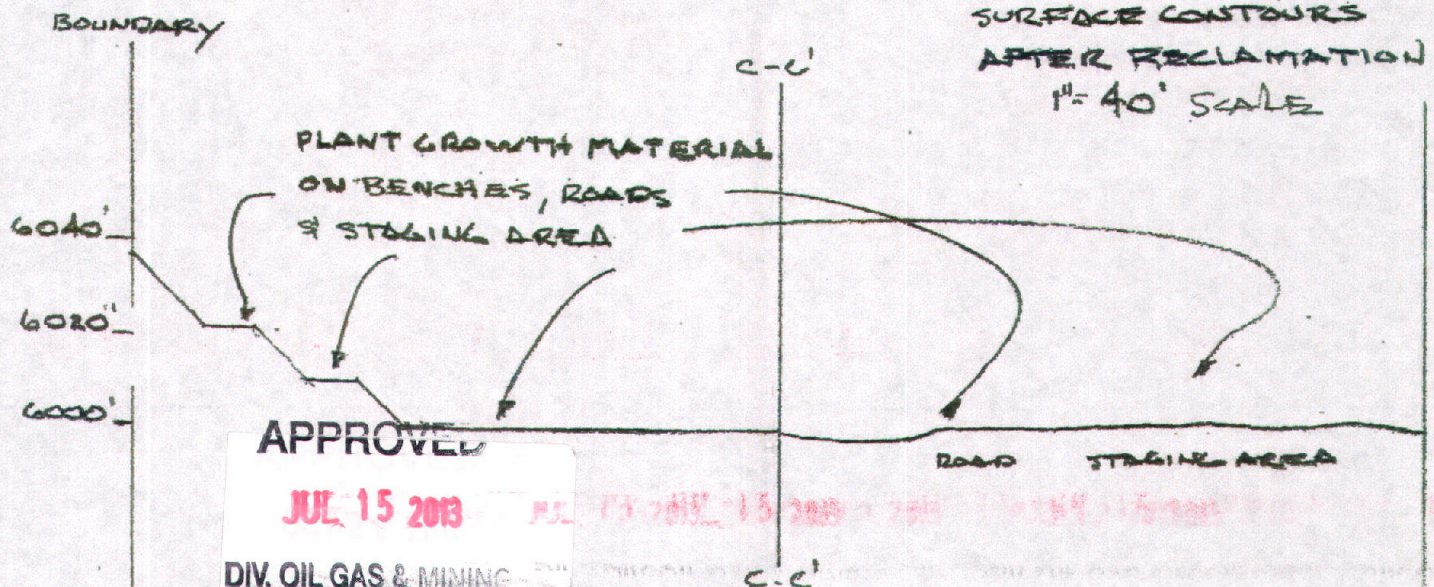 BOUNDARY
SURFACE CONTOURS
AFTER RECLAMATION
1"= 40' SCALE
C-C'
PLANT GROWTH MATERIAL
ON BENCHES, ROADS
& STAGING AREA
6040'
6020'
6000'
ROAD
STAGING AREA
APPROVED
JUL 15 2013
DIV. OIL GAS & MINING
C-C'